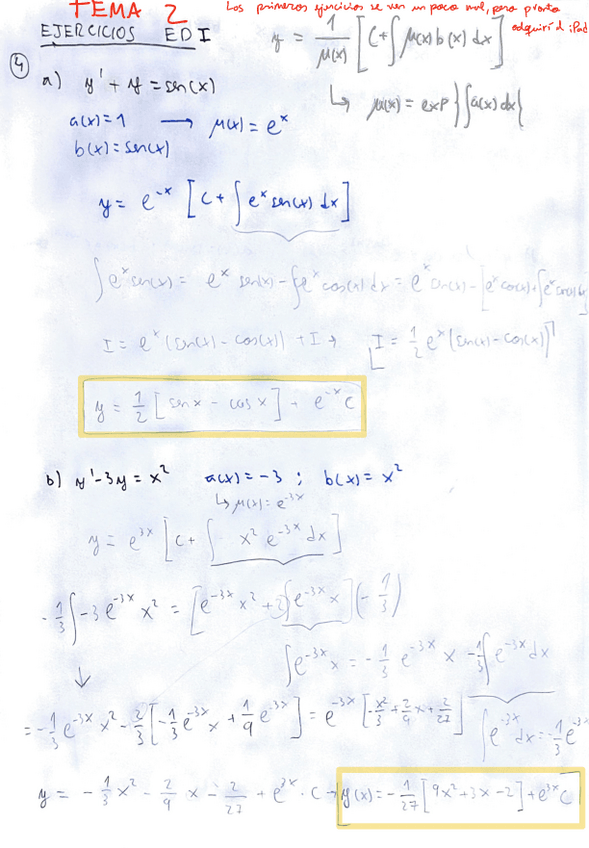 TEMA 2
Los primeros ejercicios se ven un poco mal, pero pronto
adquirí el iPad
EJERCICIOS EDI
y = 1/μ(x) [C + ∫ μ(x) b(x) dx]
↳ μ(x) = exp } ∫ a(x) dx {
4
a) y' + y = sen(x)
a(x) = 1 → μ(x) = e^x
b(x) = sen(x)
y = e^-x [C + ∫ e^x sen(x) dx]
∫ e^x sen(x) = e^x sen(x) - ∫ e^x cos(x) dx = e^x sen(x) - [e^x cos(x) + ∫ e^x sen(x) dx
I = e^x (sen(x) - cos(x)) + I → I = 1/2 e^x (sen(x) - cos(x))
y = 1/2 [sen x - cos x] + e^-x C
b) y' - 3y = x² a(x) = -3 ; b(x) = x²
↳ μ(x) = e^-3x
y = e^3x [C + ∫ x² e^-3x dx]
-1/3 ∫ -3 e^-3x x² = [e^-3x x² + 2 ∫ e^-3x x] (-1/3)
∫ e^-3x x = -1/3 e^-3x x -1/3 ∫ e^-3x dx
↓
= -1/3 e^-3x x² - 2/3 [-1/3 e^-3x x + 1/9 e^-3x] = e^-3x [-x²/3 + 2/9 x + 2/27]
∫ e^-3x dx = -1/3 e^-3x
y = -1/3 x² - 2/9 x - 2/27 + e^3x · C → y(x) = -1/27 [9x² + 3x - 2] + e^3x C